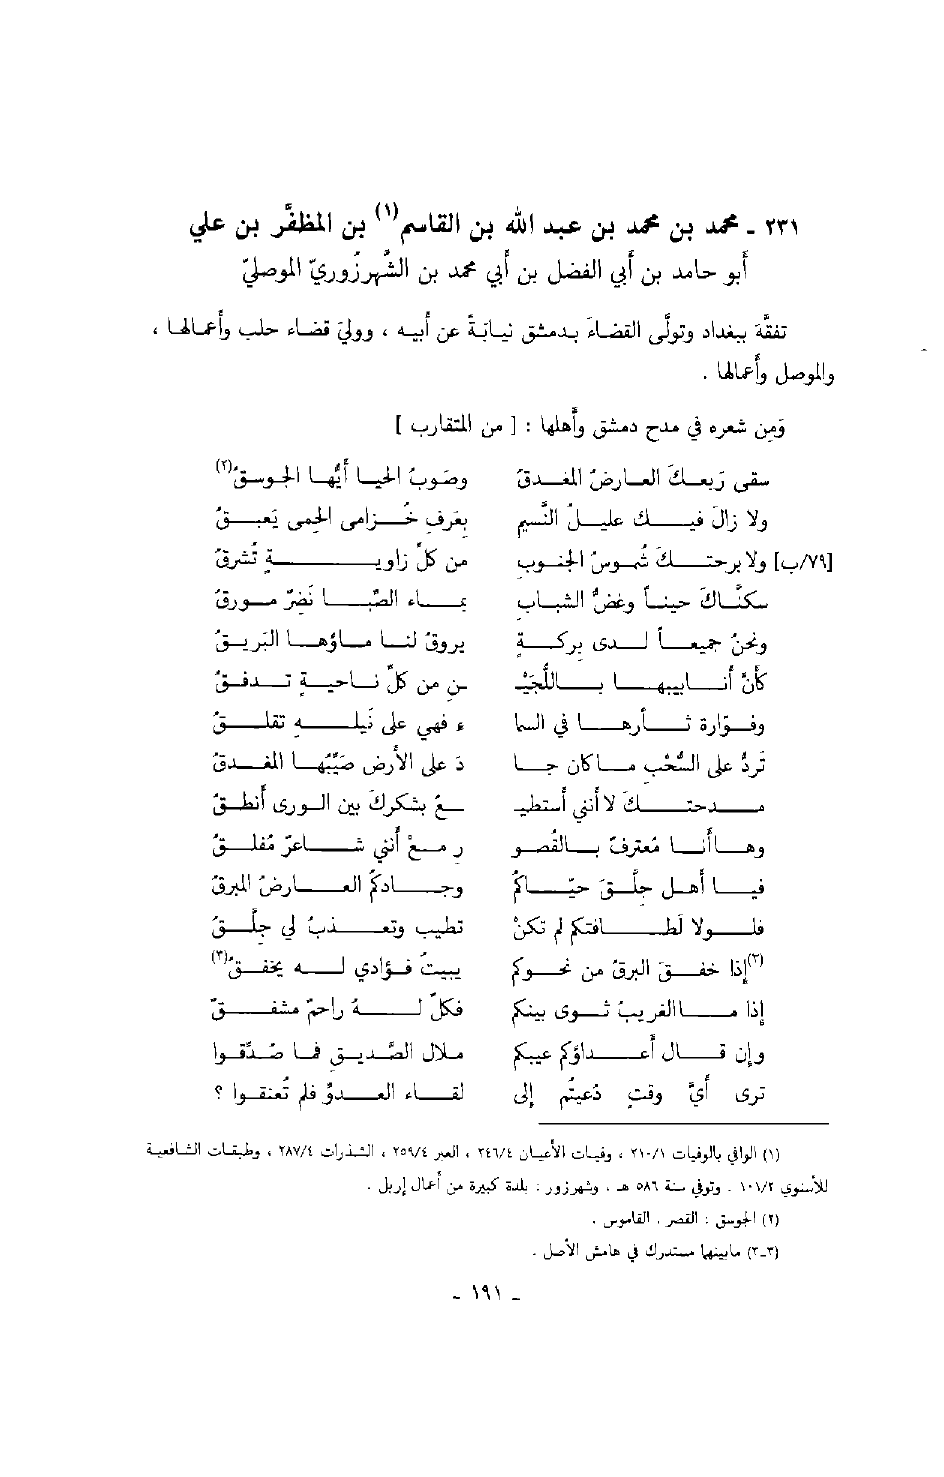 ٢٣١ ـ محمد بن محمد بن عبد الله بن القاسم(١) بن المظفَّر بن علي
أبو حامد بن أبي الفضل بن أبي محمد بن الشَّهرزُوريّ الموصليّ
تفقَّهَ ببغداد وتولَّى القضاءَ بدمشق نيابةً عن أبيه ، وولي قضاء حلب وأعمالها ،
والموصل وأعمالها .
ومِن شعره في مدح دمشق وأهلها : [ من المتقارب ]
سقى رَبعـكَ العـارضُ المغـدقُ وصَوبُ الحيـا أيُّهـا الجوسـقُ(٢)
ولا زالَ فيـك عليـلُ النَّسيم بعَرفِ خُـزامى الحِمى يَعبـقُ
[٧٩/ب] ولا برحتـكَ شُمـوسُ الجنـوب من كلِّ زاويـةٍ تُشرقُ
سكنَّـاكَ حينـاً وغضُّ الشبـاب بمـاء الصِّبـا نَضِرٌ مـورقُ
ونحنُ جميعـاً لـدى بركـةٍ يروقُ لنـا مـاؤهـا الأزرقُ
كأنَّ أنـابيبهـا بـاللُّجَيْـ ـنِ من كلِّ نـاحيـةٍ تـدفـقُ
وفـوّارة ثـأرهـا في السما ء فهي على نَيلـه تقلـقُ
تَردُّ على السُّحْب مـا كان جـا دَ على الأرض صَيِّبُهـا المغـدقُ
مـدحتـكَ لا أنني أستطيـ ـعُ بشكركَ بين الورى أنطـقُ
وهـا أنـا مُعترفٌ بـالقُصو ر مـعْ أنني شـاعرٌ مُفلـقُ
فيـا أهـل جلَّـق حيّـاكمُ وجـادكمُ العـارضُ المبرقُ
فلـولا لَطـافتكم لم تكنْ تطيب وتعـذبُ لي جلَّـقُ
(٣)إذا خفـقَ البرقُ من نحـوكم يبيتُ فـؤادي لـه يخفـقُ(٣)
إذا مـا الغريبُ ثـوى بينكم فكلٌّ لـهُ راحمٌ مشفـقُ
وإن قـال أعـداؤكم عيبكم مـلال الصَّديـق فمـا صُـدِّقوا
ترى أيَّ وقتٍ دُعيتُم إلى لقـاء العـدوِّ فلم تُعنقـوا ؟
(١) الوافي بالوفيات ٢١٠/١ ، وفيات الأعيان ٢٤٦/٤ ، العبر ٢٥٩/٤ ، الشذرات ٢٨٧/٤ ، وطبقات الشافعية
للأسنوي ١٠١/٢ . وتوفي سنة ٥٨٦ هـ ، وشهرزور : بلدة كبيرة من أعمال إربل .
(٢) الجوسق : القصر . القاموس .
(٣ـ٣) مابينها مستدرك في هامش الأصل .
ـ ١٩١ ـ